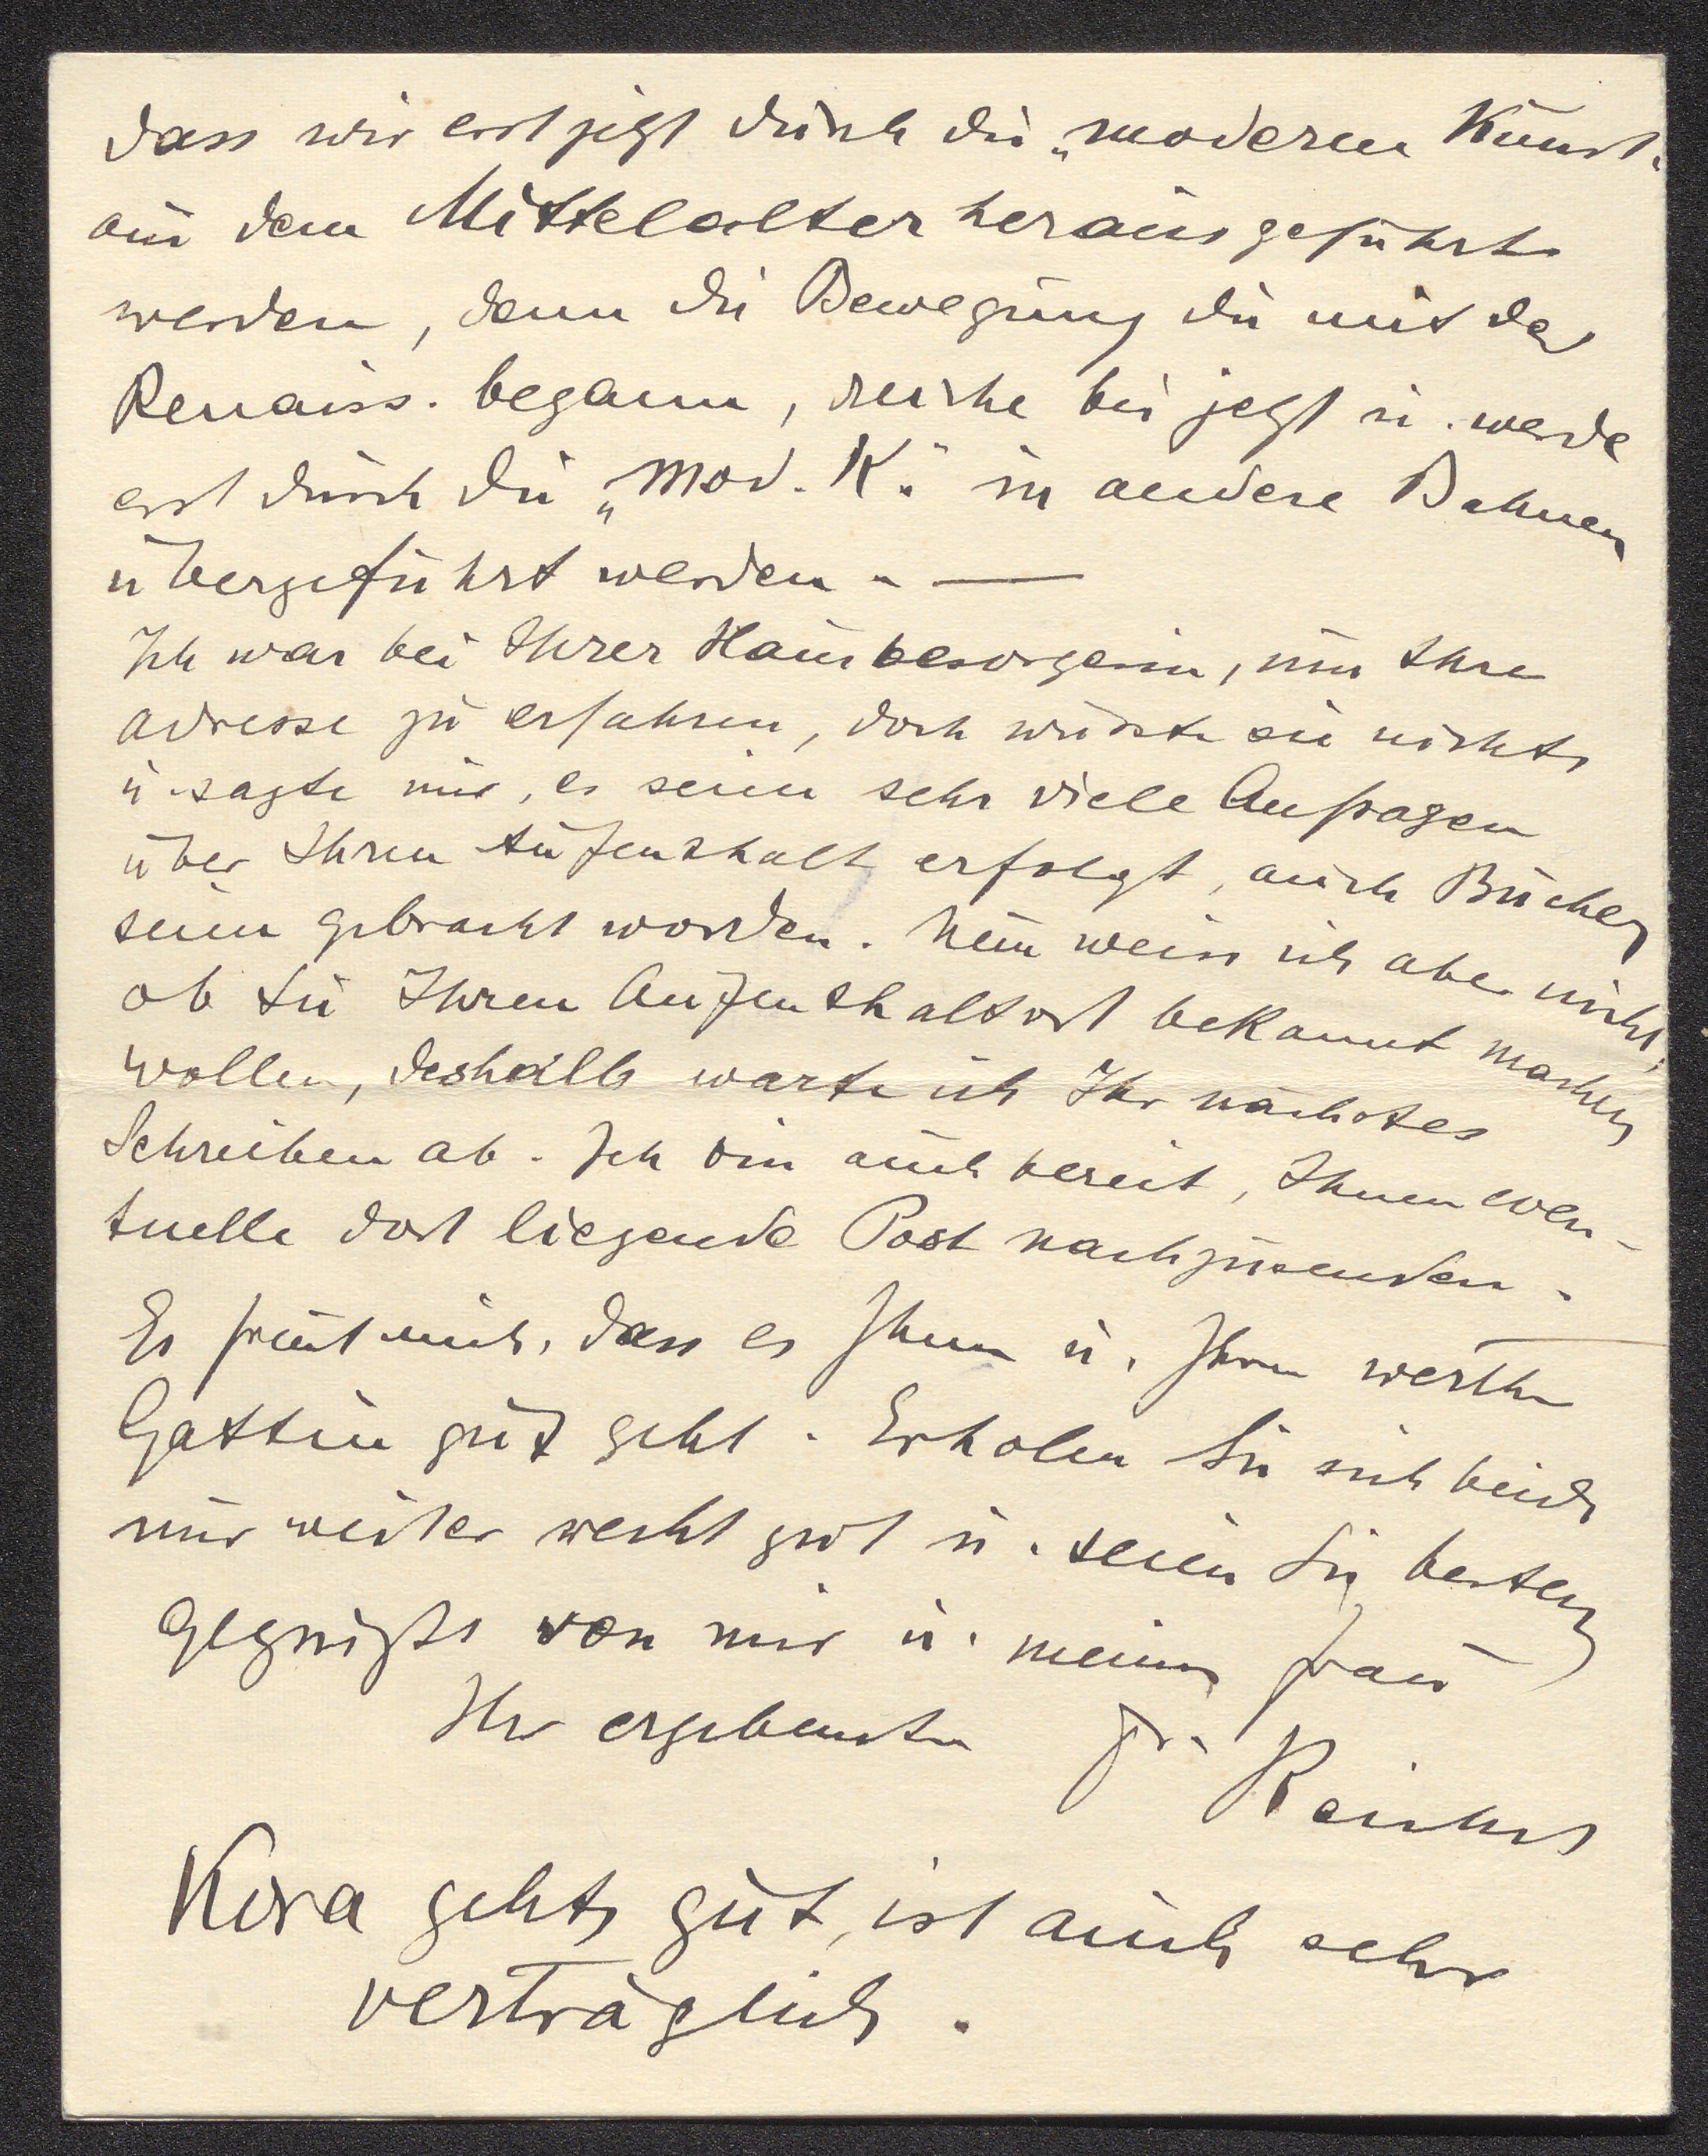 dass wir erst jetzt durch die „moderne Kunst"
aus dem Mittelalter herausgeführt
werden, denn die Bewegung die mit der
Renaiss. begann, reiche bis jetzt u. werde
erst durch die „Mod. K." in andere Bahnen
übergeführt werden. —
Ich war bei Ihrer Hausbesorgerin, um Ihre
Adresse zu erfahren, doch wusste sie nichts
u. sagte mir, es seien sehr viele Anfragen
über Ihren Aufenthalt erfolgt, auch Bücher
seien gebracht worden. Nun weiss ich aber nicht,
ob Sie Ihren Aufenthaltsort bekannt machen
wollen, deshalb warte ich Ihr nächstes
Schreiben ab. Ich bin auch bereit, Ihnen even-
tuelle dort liegende Post nachzusenden.
Es freut mich, dass es Ihnen u. Ihrer werthen
Gattin gut geht. Erholen Sie sich beide
nur weiter recht gut u. seien Sie bestens
gegrüsst von mir u. meiner Frau
Ihr ergebenster Fr. Reichert
Kora geht's gut, ist auch sehr
verträglich.